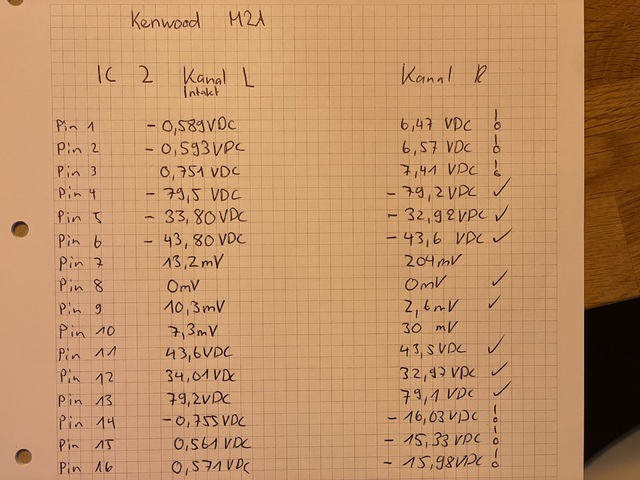 Kenwood M21
IC 2 Kanal L Kanal R
Intakt
Pin 1 - 0,589VDC 6,47 VDC !
Pin 2 - 0,593VDC 6,57 VDC !
Pin 3 0,751VDC 7,41 VDC !
Pin 4 - 79,5 VDC - 79,2VDC ✓
Pin 5 - 33,80VDC - 32,92VDC ✓
Pin 6 - 43,80VDC - 43,6 VDC ✓
Pin 7 13,2mV 204mV
Pin 8 0mV 0mV ✓
Pin 9 10,3mV 2,6mV ✓
Pin 10 7,3mV 30 mV
Pin 11 43,6VDC 43,5VDC ✓
Pin 12 34,01VDC 32,97VDC ✓
Pin 13 79,2VDC 79,1VDC ✓
Pin 14 - 0,755VDC - 16,03VDC !
Pin 15 0,561VDC - 15,33VDC !
Pin 16 0,571VDC - 15,98VDC !